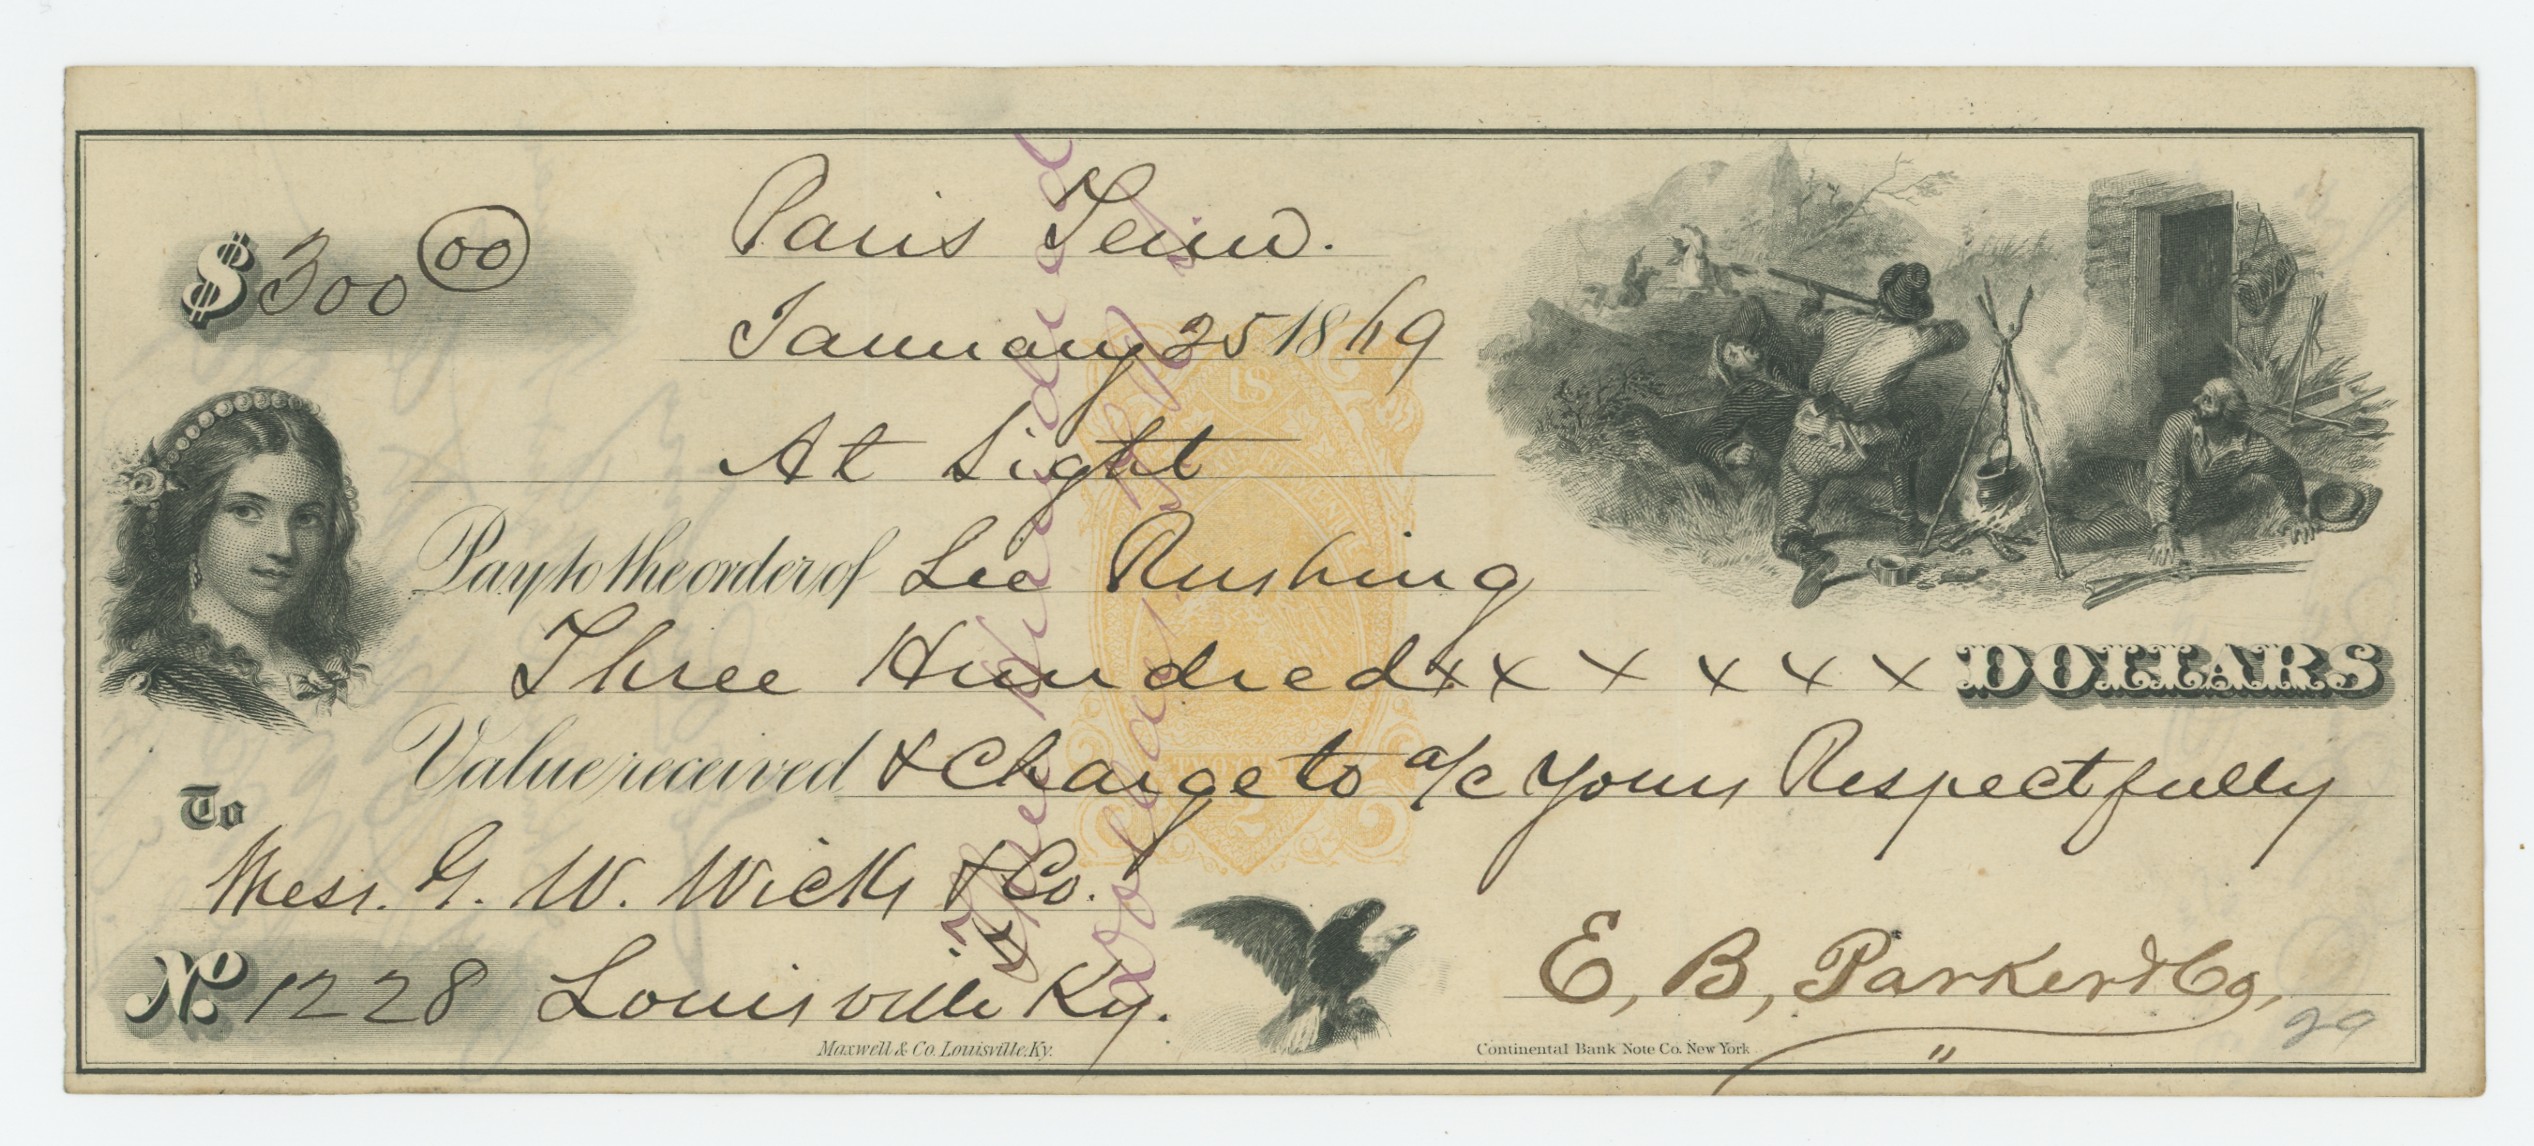 Paris Tenn.
$300 00
January 25 1869
At Sight
Pay to the order of Lee Rushing
Three Hundred x x x x x x DOLLARS
Value received & Charge to a/c Yours Respectfully
To
Mess. G. W. Wicks & Co.
No. 1228 Louisville Ky.
E. B. Parker & Co,
29
Maxwell & Co. Louisville, Ky.
Continental Bank Note Co. New York
US
2